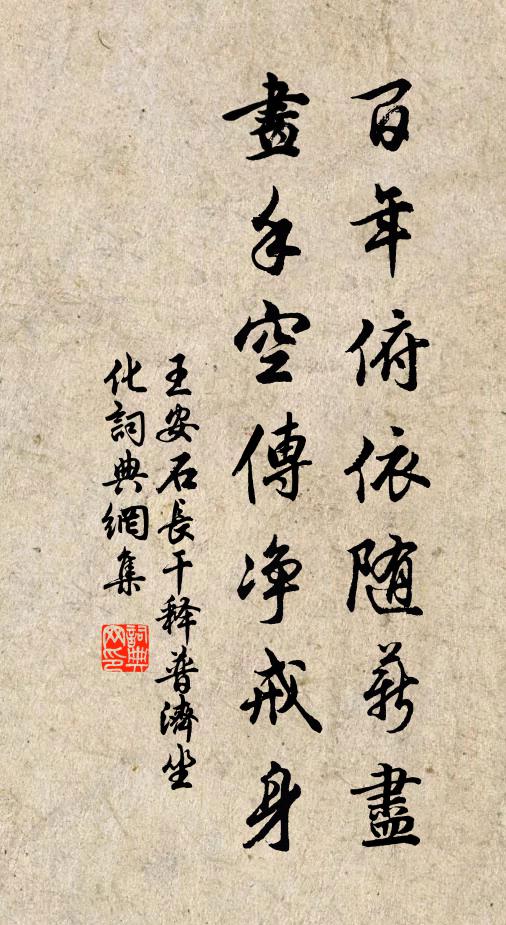 百年俯依随薪盡
畫手空傳净戒身
王安石長干释普濟坐
化詞典網集
詞典网印